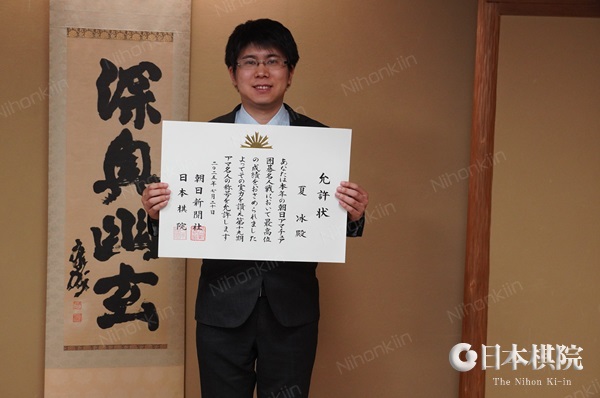 深奥幽玄
允許状
夏 冰殿
あなたは本年の朝日アマチュア
囲碁名人戦において最高位
の成績をおさめられました
よってその実力を讃え第十九期
アマ名人の称号を允許します
二〇二五年七月二十日
朝日新聞社
日本棋院
日本棋院
The Nihon Ki-in
Nihonkiin
Nihonkiin
Nihonkiin
Nihonkiin
Nihonkiin
Nihonkiin
Nihonkiin
Nihonkiin